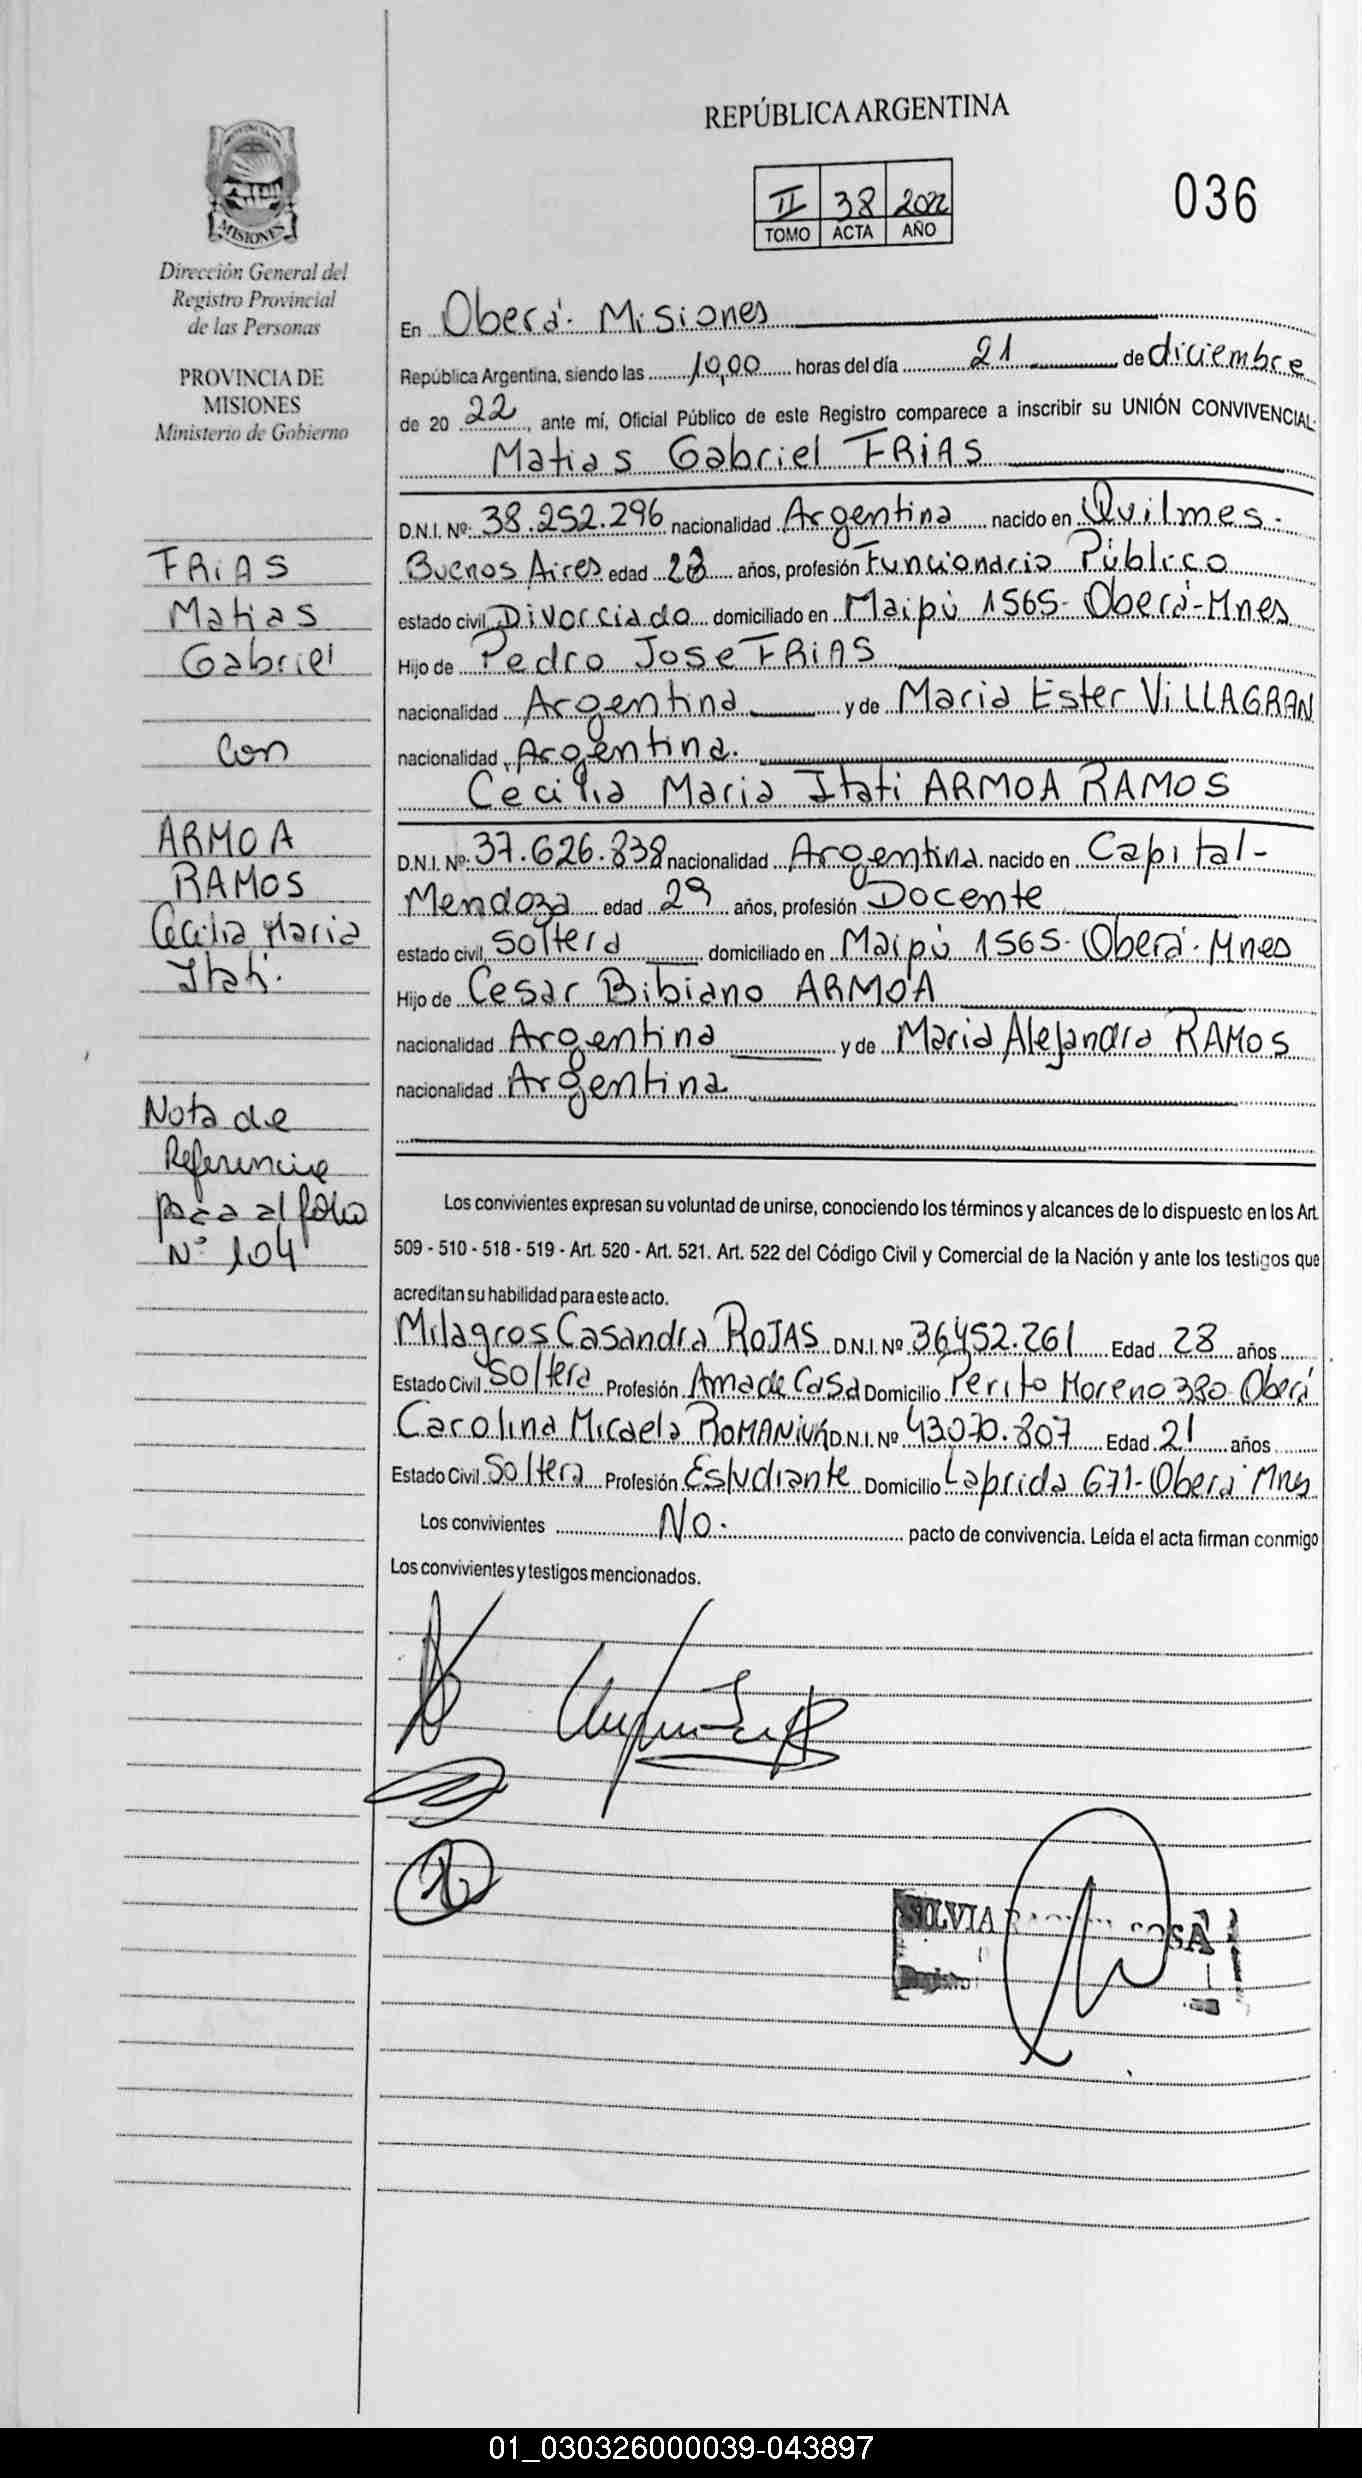 REPÚBLICA ARGENTINA
PROVINCIA DE MISIONES
II 38 2022
TOMO ACTA AÑO
036
Dirección General del
Registro Provincial
de las Personas
PROVINCIA DE
MISIONES
Ministerio de Gobierno
FRIAS
Matias
Gabriel
Con
ARMOA
RAMOS
Cecilia Maria
Itatí.
Nota de
Referencia
pasa al folio
N° 104
En Oberá. Misiones
República Argentina, siendo las 10,00 horas del día 21 de diciembre
de 20 22, ante mí, Oficial Público de este Registro comparece a inscribir su UNIÓN CONVIVENCIAL
Matias Gabriel FRIAS
D.N.I. Nº: 38.252.296 nacionalidad Argentina nacido en Quilmes.
Buenos Aires edad 28 años, profesión Funcionario Público
estado civil Divorciado domiciliado en Maipú 1565- Oberá-Mnes
Hijo de Pedro Jose FRIAS
nacionalidad Argentina y de Maria Ester VILLAGRAN
nacionalidad Argentina.
Cecilia Maria Itati ARMOA RAMOS
D.N.I. Nº: 37.626.838 nacionalidad Argentina. nacido en Capital-
Mendoza edad 29 años, profesión Docente
estado civil, soltera domiciliado en Maipú 1565- Oberá. Mnes
Hijo de Cesar Bibiano ARMOA
nacionalidad Argentina y de Maria Alejandra RAMOS
nacionalidad Argentina
Los convivientes expresan su voluntad de unirse, conociendo los términos y alcances de lo dispuesto en los Art.
509 - 510 - 518 - 519 - Art. 520 - Art. 521. Art. 522 del Código Civil y Comercial de la Nación y ante los testigos que
acreditan su habilidad para este acto.
Milagros Casandra ROJAS D.N.I. Nº 36452.261 Edad 28 años
Estado Civil Soltera Profesión Ama de Casa Domicilio Perito Moreno 380 Oberá
Carolina Micaela ROMANIUK D.N.I. Nº 43070.807 Edad 21 años
Estado Civil Soltera Profesión Estudiante Domicilio Laprida 671- Oberá Mnes
Los convivientes No. pacto de convivencia. Leída el acta firman conmigo
Los convivientes y testigos mencionados.
SILVIA
Registro
01_030326000039-043897